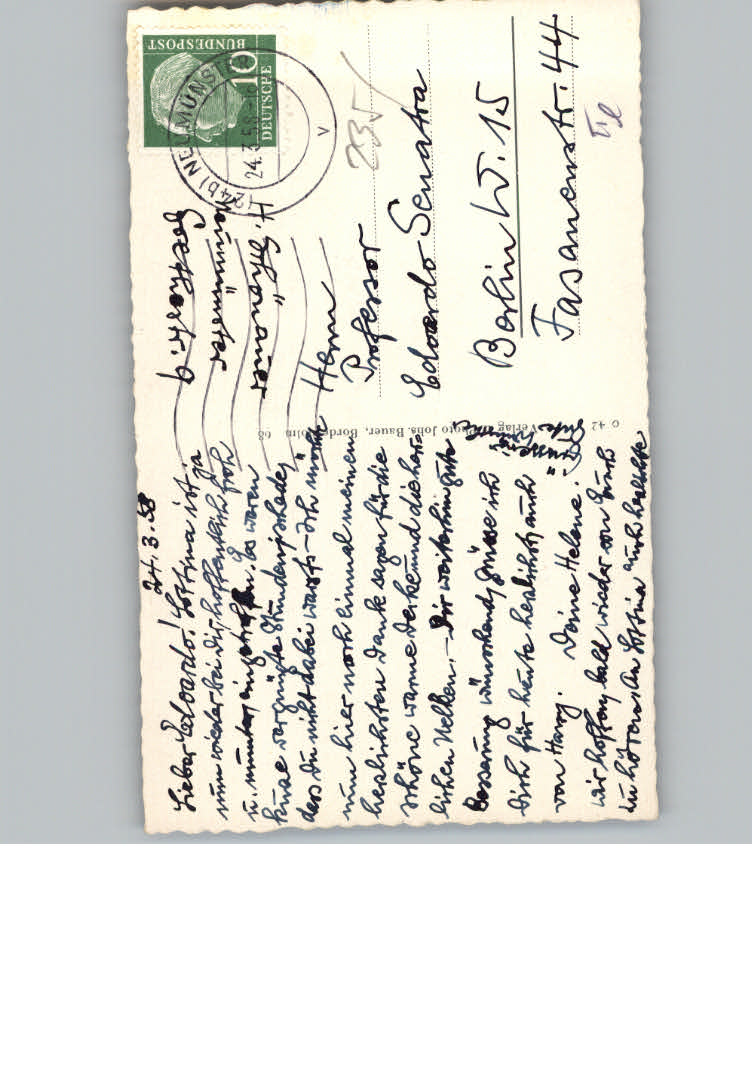 24.3.58
Lieber Edoardo! Costina ist ja
nun wieder bei dir, hoffentlich froh
u. munter eingetroffen. Es waren
kurze vergnügte Stunden, schade,
dass du nicht dabei warst. – Ich möchte
nun hier noch einmal meinen
herzlichsten Dank sagen für die
schöne warme Decke und die herr-
lichen Nelken. – Dir weiterhin gute
Besserung wünschend, grüsse ich
dich für heute herzlichst, auch
von Harry. Deine Helene.
wir hoffen, bald wieder von Euch
zu hören. An Costina auch herzlichste
Grüsse
H.
Neumünster
DEUTSCHE
BUNDESPOST
10
(24b) NEUMÜNSTER
24.3.58
V
235
Herrn
Professor
Edoardo Senatra
Berlin W. 15
Fasanenstr. 44
O 42 Verlag u. Photo Johs. Bauer, Bordesholm 68